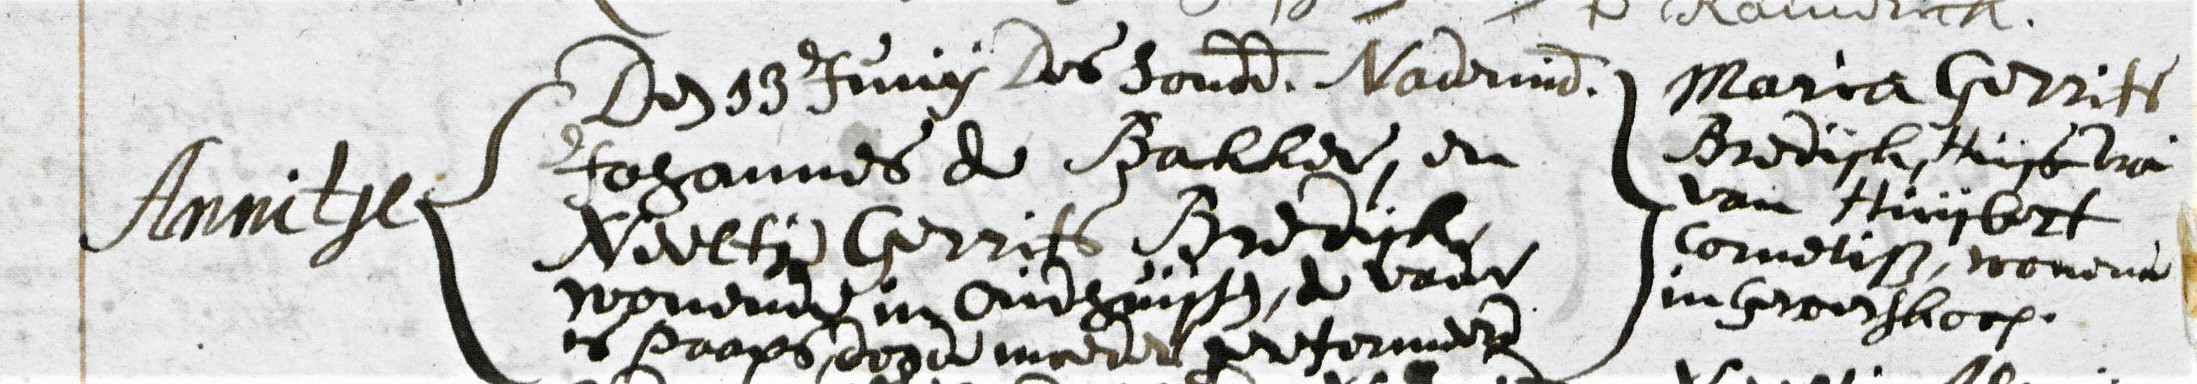 Annitje
Den 13 Junij des Sondd. Nademid.
Johannes de Bakker, en
Neeltje Gerrits Bredijk,
wonende in Oudhuijsen, de vader
is Paaps, doch de moeder gereformeerd
Maria Gerrits
Bredijk, Huijsvrou
van Huijbert
Cornelisz, wonend
in Gerverskoop.